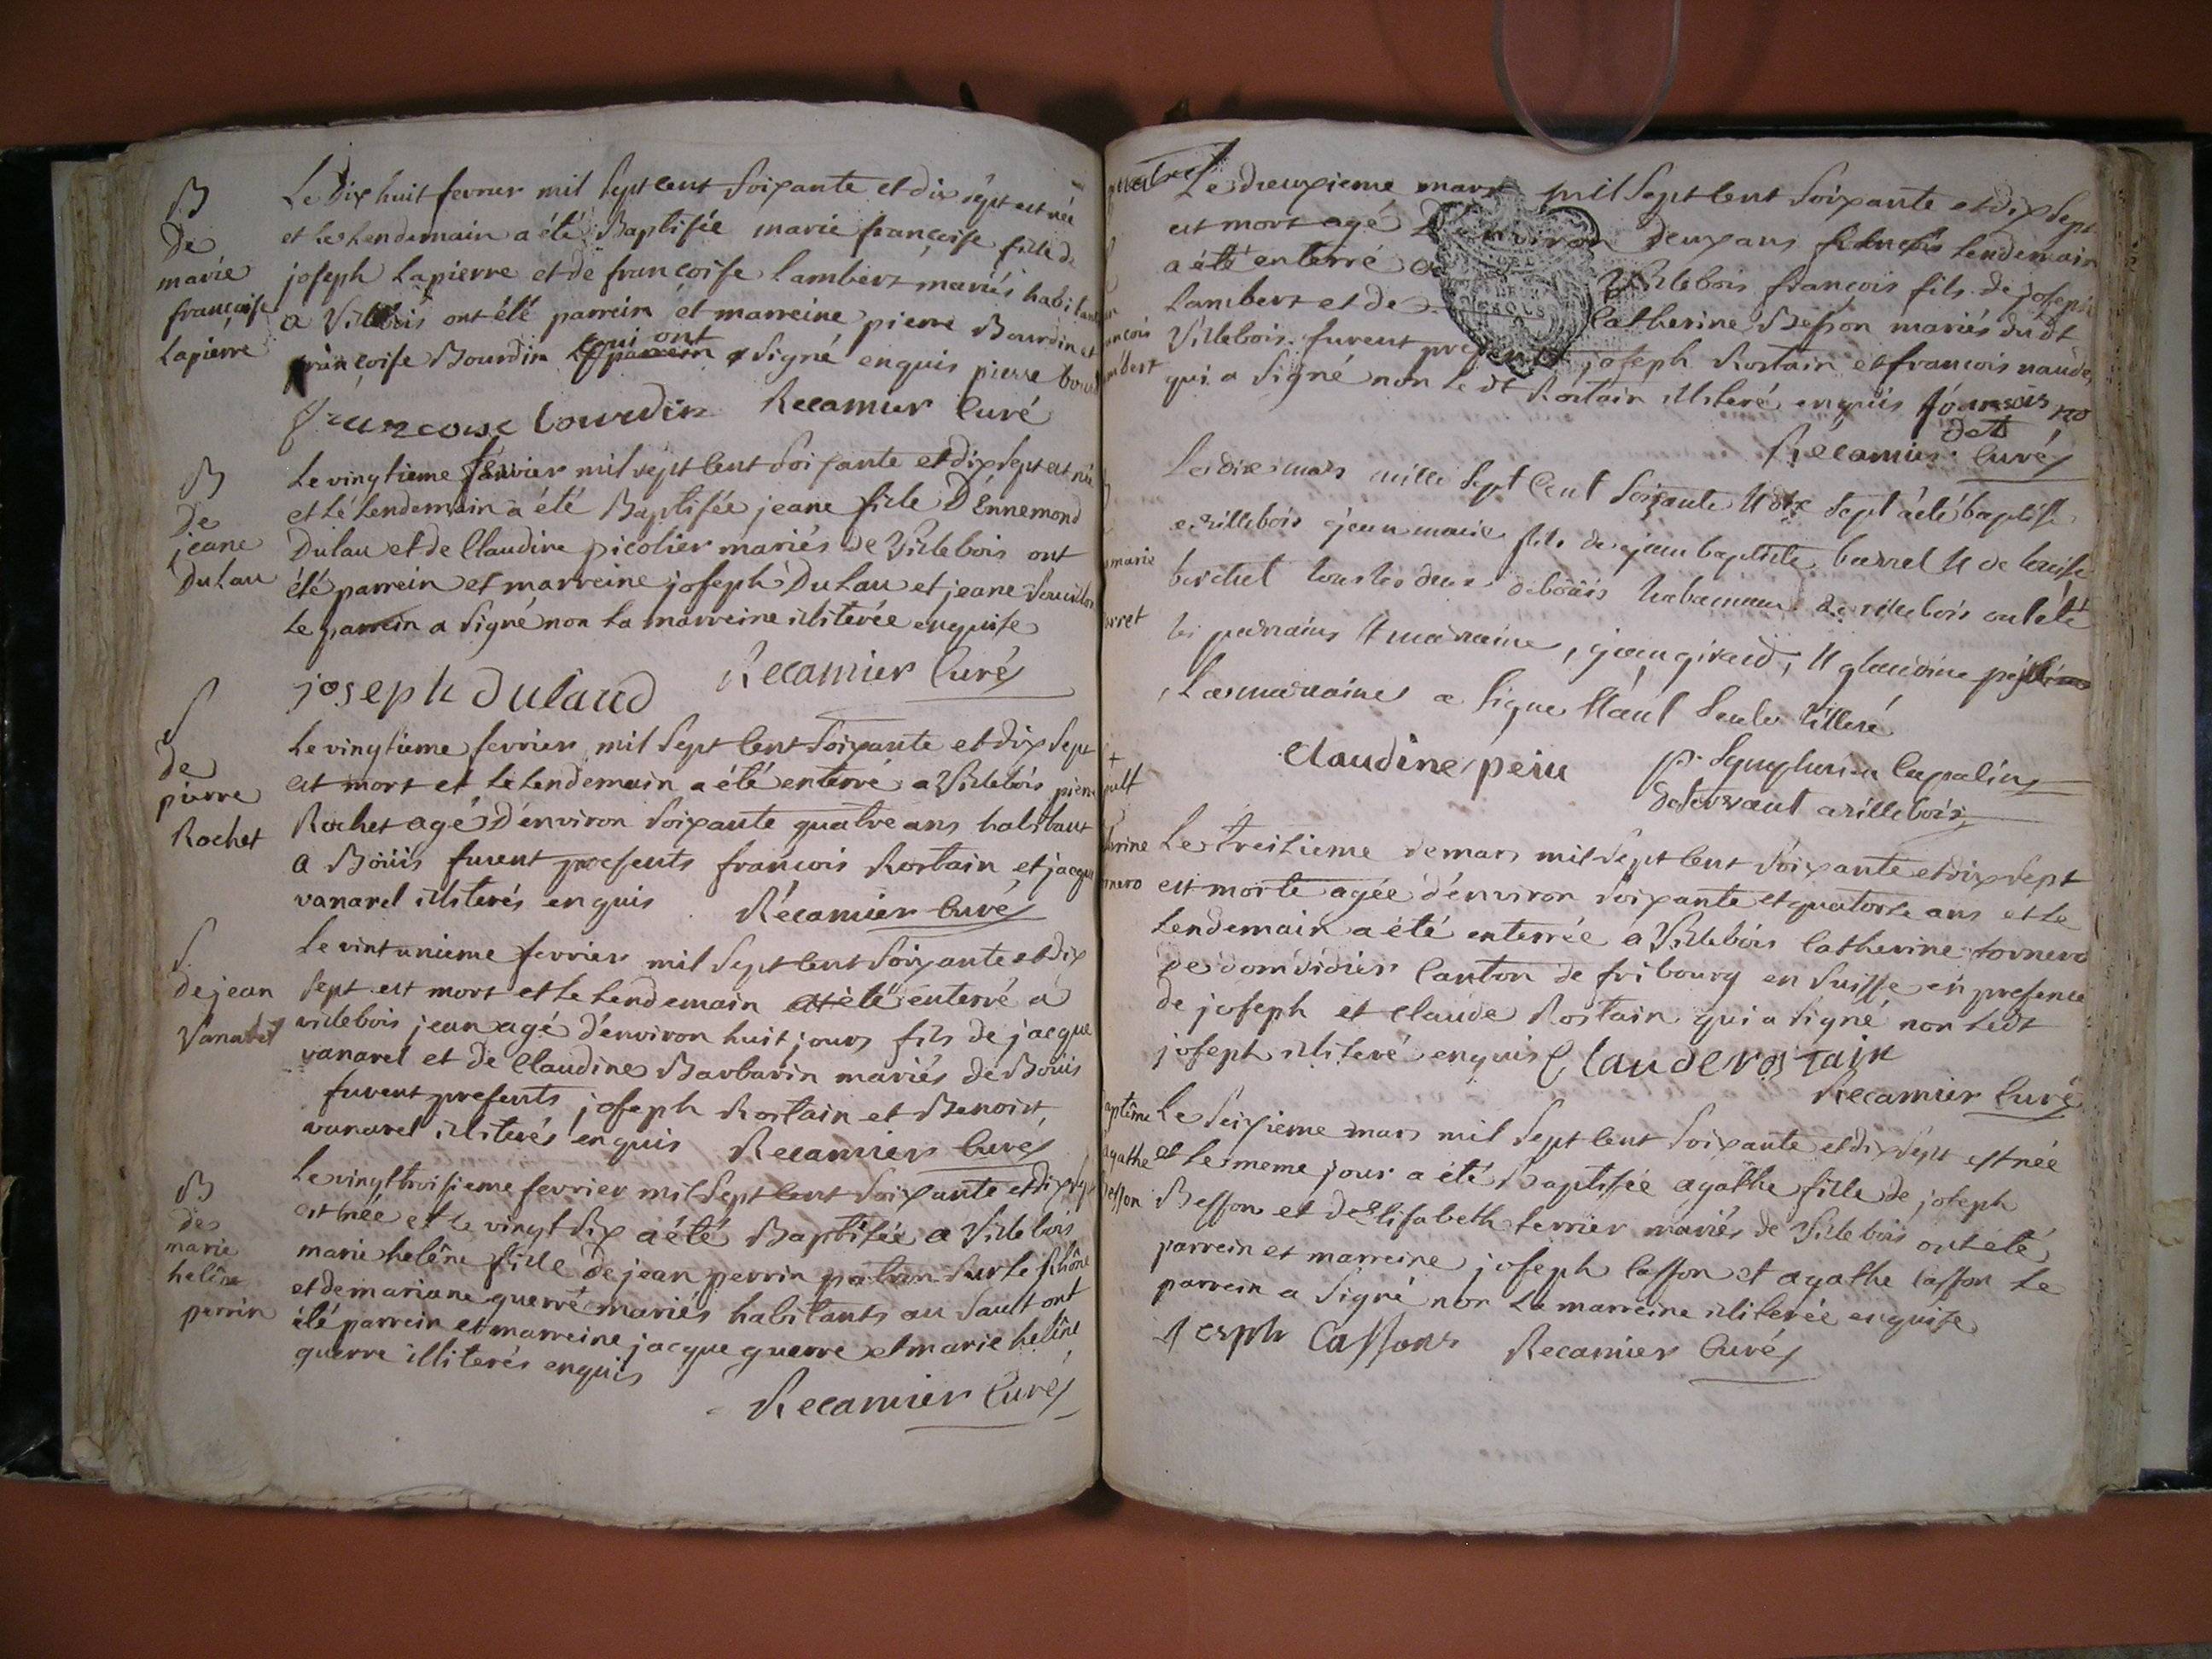 B
De
marie
françoise
Lapierre
Le Dix huit fevrier mil sept cent soixante et dix sept est née
et le Lendemain a été Baptisée marie françoise fille de
joseph Lapierre et de françoise Lambert mariés habitant
a Villebois ont été parrein et marreine pierre Bourdin et
françoise Bourdin qui ont signé enquis pierre bour
francoise bourdin Recamier Curé
B
De
jeane
Dulau
Le vingtieme fevrier mil sept cent soixante et dix sept est née
et Le Lendemain a été Baptisée jeane fille D'Ennemond
Dulau et de Claudine picolier mariés de Villebois ont
été parrein et marreine joseph Dulau et jeane
Le parrein a signé non La marreine illiterée enquise
joseph dulaud Recamier Curé
S
de
pierre
Rochet
Le vingtieme fevrier mil sept cent soixante et dix sept
est mort et Le Lendemain a été enterré a Villebois pierre
Rochet agé D'environ soixante quatre ans habitant
a Boüis furent presents françois Rostain et jacque
vanarel illiterés enquis Récamier Curé
S
de jean
Vanarel
Le vint unieme fevrier mil sept cent soixante et dix
sept est mort et Le Lendemain a été enterré a
villebois jean agé d'environ huit jours fils de jacque
vanarel et de Claudine Barbarin mariés de Boüis
furent presents joseph Rostain et Benoist
vanarel illiterés enquis Recamier Curé
B
de
marie
helêne
perrin
Le vingt troisieme fevrier mil sept cent soixante et dix sept
est née et Le vingt six a été Baptisée a Villebois
marie helêne fille de jean perrin patron sur Le Rhône
et de mariane guerre mariés habitants au Sault ont
été parrein et marreine jacque guerre et marie helêne
guerre illiterés enquis
Recamier Curé
Le deuxieme mars mil sept cent soixante et dix sept
est mort agé D'environ deux ans Lendemain
a été enterré a Villebois françois fils de joseph
Lambert et de Catherine Besson mariés dudt
Villebois furent presents joseph Rostain et francois naude,
qui a signé non Le dt Rostain illiteré enquis francois no
det
Récamier Curé
Le dix mars mille sept cent soixante et dix sept a été baptisé
a villebois jean marie fils de jean baptiste et de Louise
tous les deux de boüis de villebois ont été
les parrains et marraine, jean girard, et glaudine
La marraine a signe seule
Claudine péiu p. capucin
desservant a villebois
Le treisieme de mars mil sept cent soixante et dix sept
est morte agée d'environ soixante et quatorse ans et Le
Lendemain a été enterrée a Villebois Catherine tornero
de domdidier Canton de fribourg en Suisse en presence
de joseph et Claude Rostain qui a signé non Ledt
joseph illiteré enquis Claude rostain
Recamier Curé
Le seisieme mars mil sept cent soixante et dix sept est née
et Le meme jour a été Baptisée agathe fille de joseph
Besson et de Elisabeth ferrier mariés de Villebois ont été
parrein et marreine joseph Casson et agathe Casson Le
parrein a signé non La marreine illiterée enquise
Casson Recamier Curé